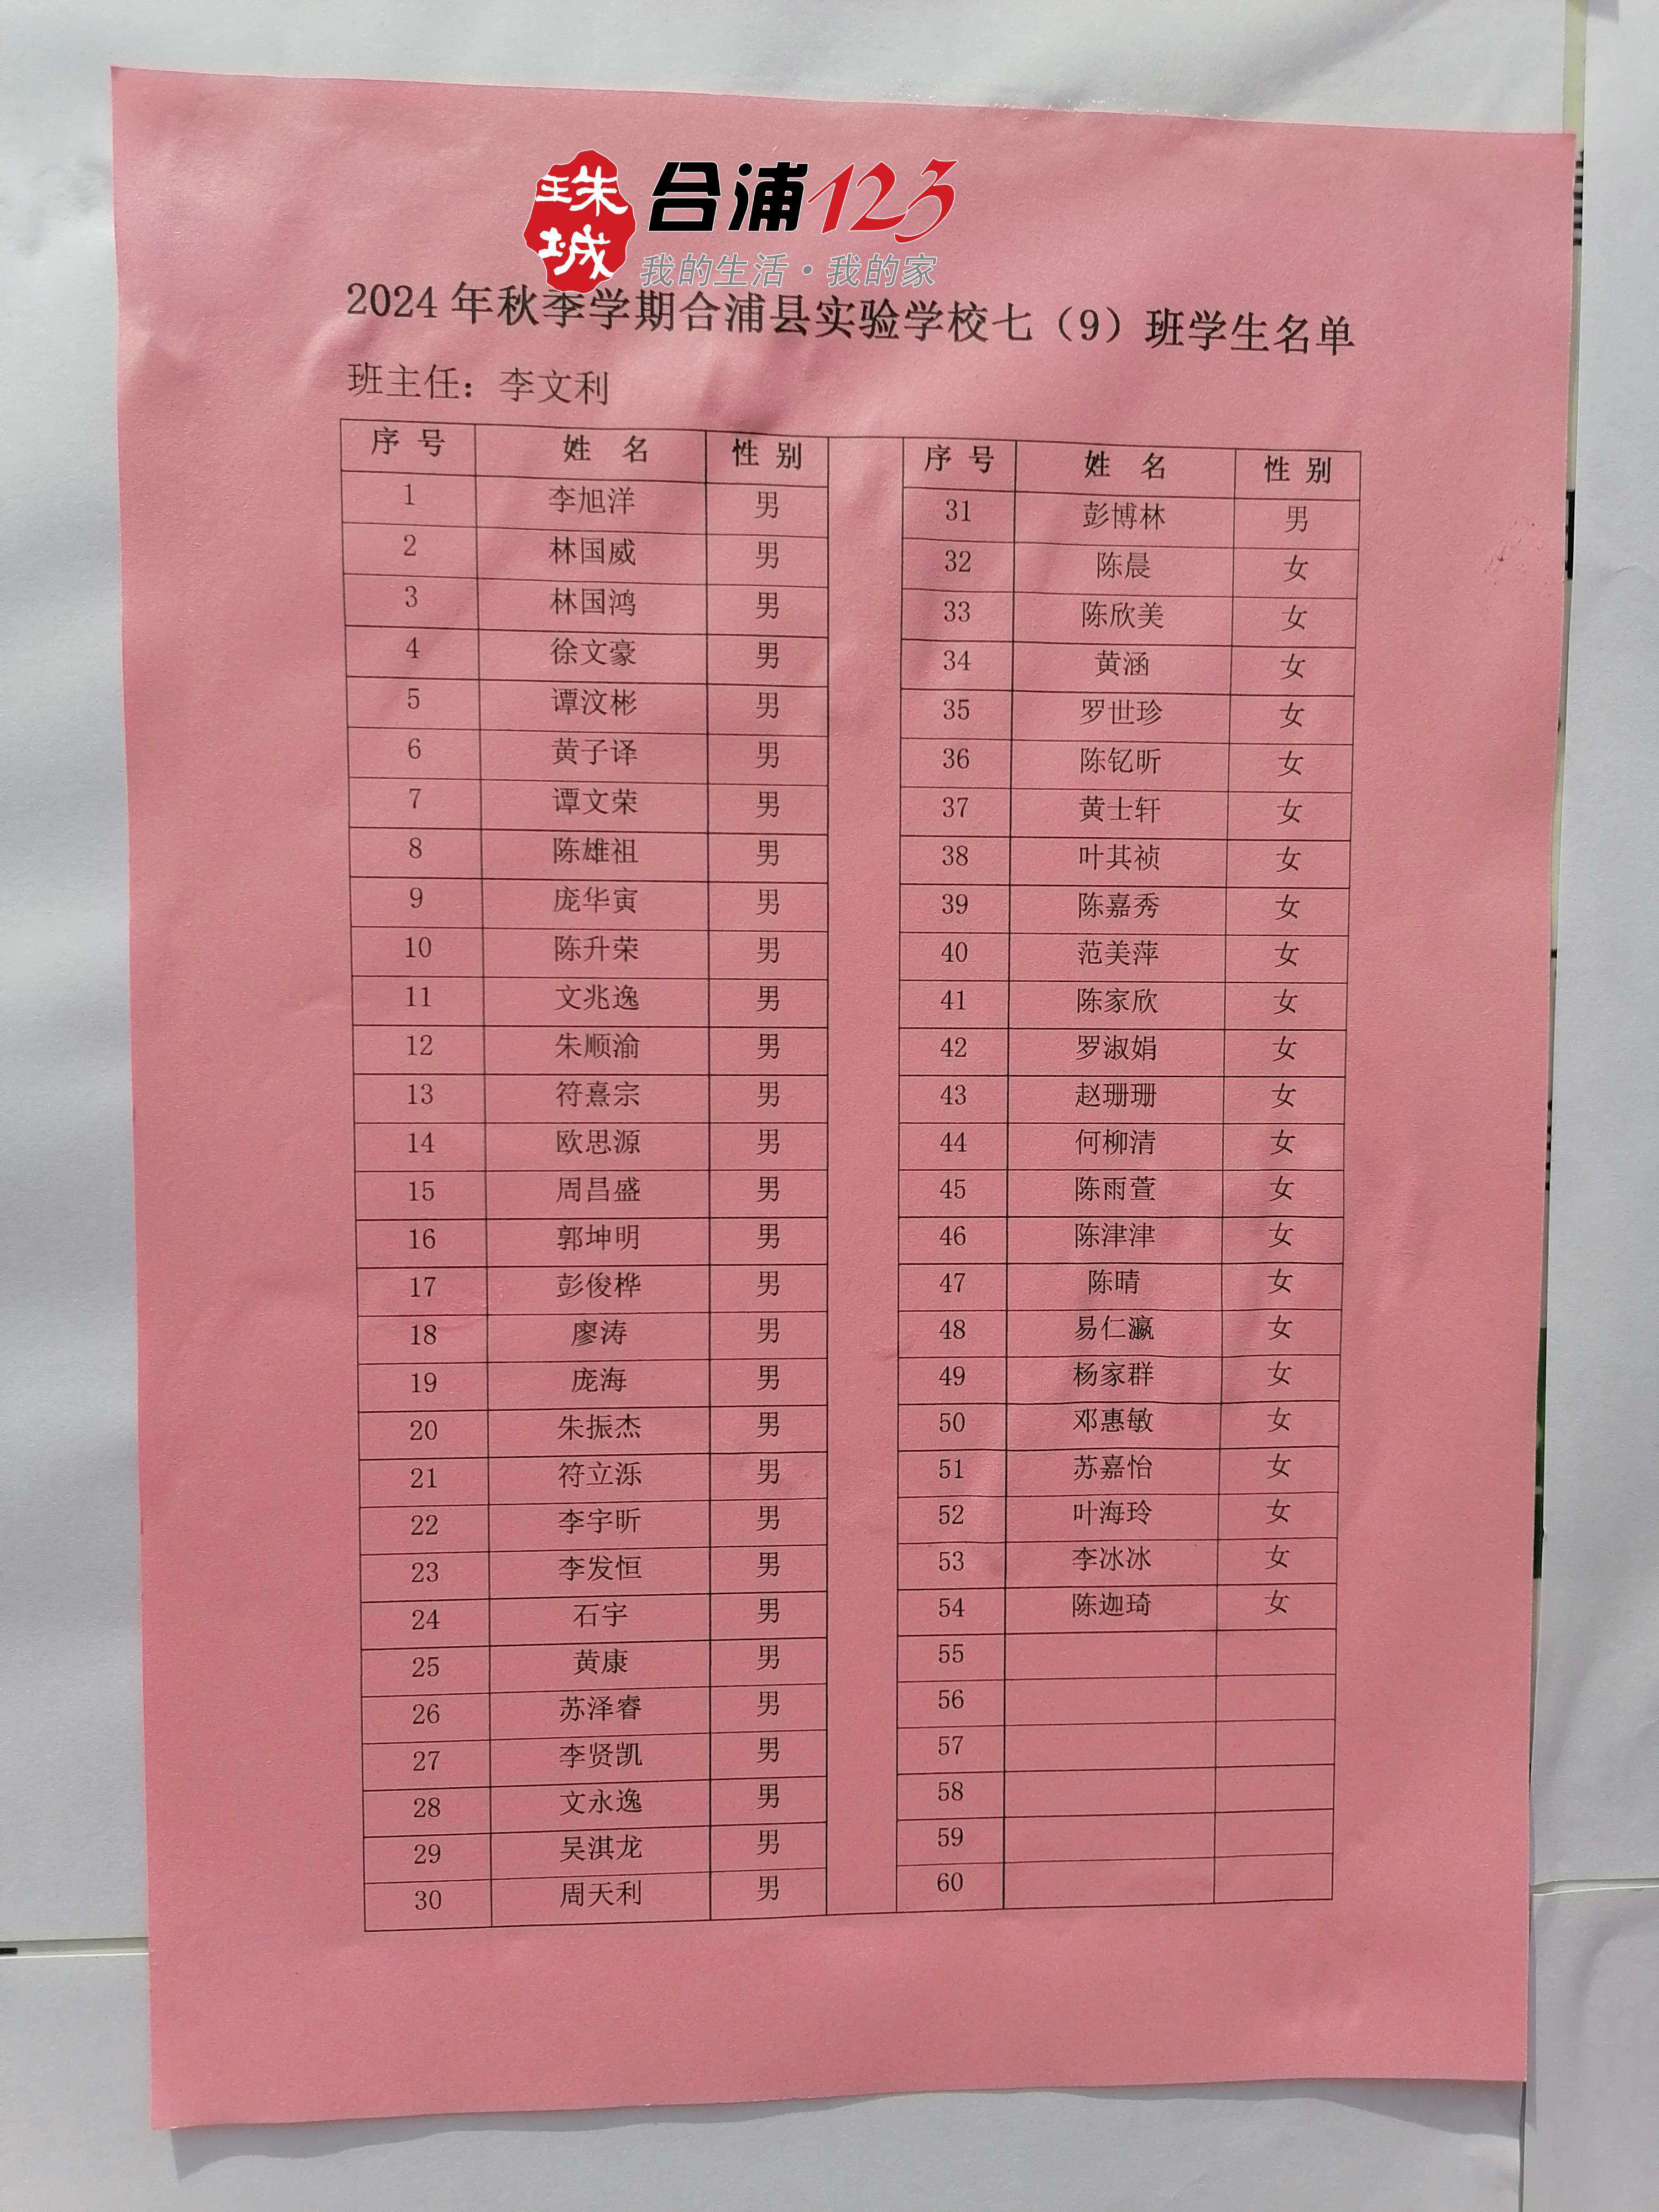 珠城
合浦123
我的生活·我的家
2024年秋季学期合浦县实验学校七（9）班学生名单
班主任：李文利
序号 姓名 性别 序号 姓名 性别
1 李旭洋 男 31 彭博林 男
2 林国威 男 32 陈晨 女
3 林国鸿 男 33 陈欣美 女
4 徐文豪 男 34 黄涵 女
5 谭汶彬 男 35 罗世珍 女
6 黄子译 男 36 陈钇昕 女
7 谭文荣 男 37 黄士轩 女
8 陈雄祖 男 38 叶其祯 女
9 庞华寅 男 39 陈嘉秀 女
10 陈升荣 男 40 范美萍 女
11 文兆逸 男 41 陈家欣 女
12 朱顺渝 男 42 罗淑娟 女
13 符熹宗 男 43 赵珊珊 女
14 欧思源 男 44 何柳清 女
15 周昌盛 男 45 陈雨萱 女
16 郭坤明 男 46 陈津津 女
17 彭俊桦 男 47 陈晴 女
18 廖涛 男 48 易仁瀛 女
19 庞海 男 49 杨家群 女
20 朱振杰 男 50 邓惠敏 女
21 符立泺 男 51 苏嘉怡 女
22 李宇昕 男 52 叶海玲 女
23 李发恒 男 53 李冰冰 女
24 石宇 男 54 陈迦琦 女
25 黄康 男 55
26 苏泽睿 男 56
27 李贤凯 男 57
28 文永逸 男 58
29 吴淇龙 男 59
30 周天利 男 60